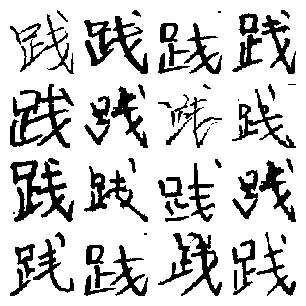 践践践践
践践践践
践践践践
践践践践